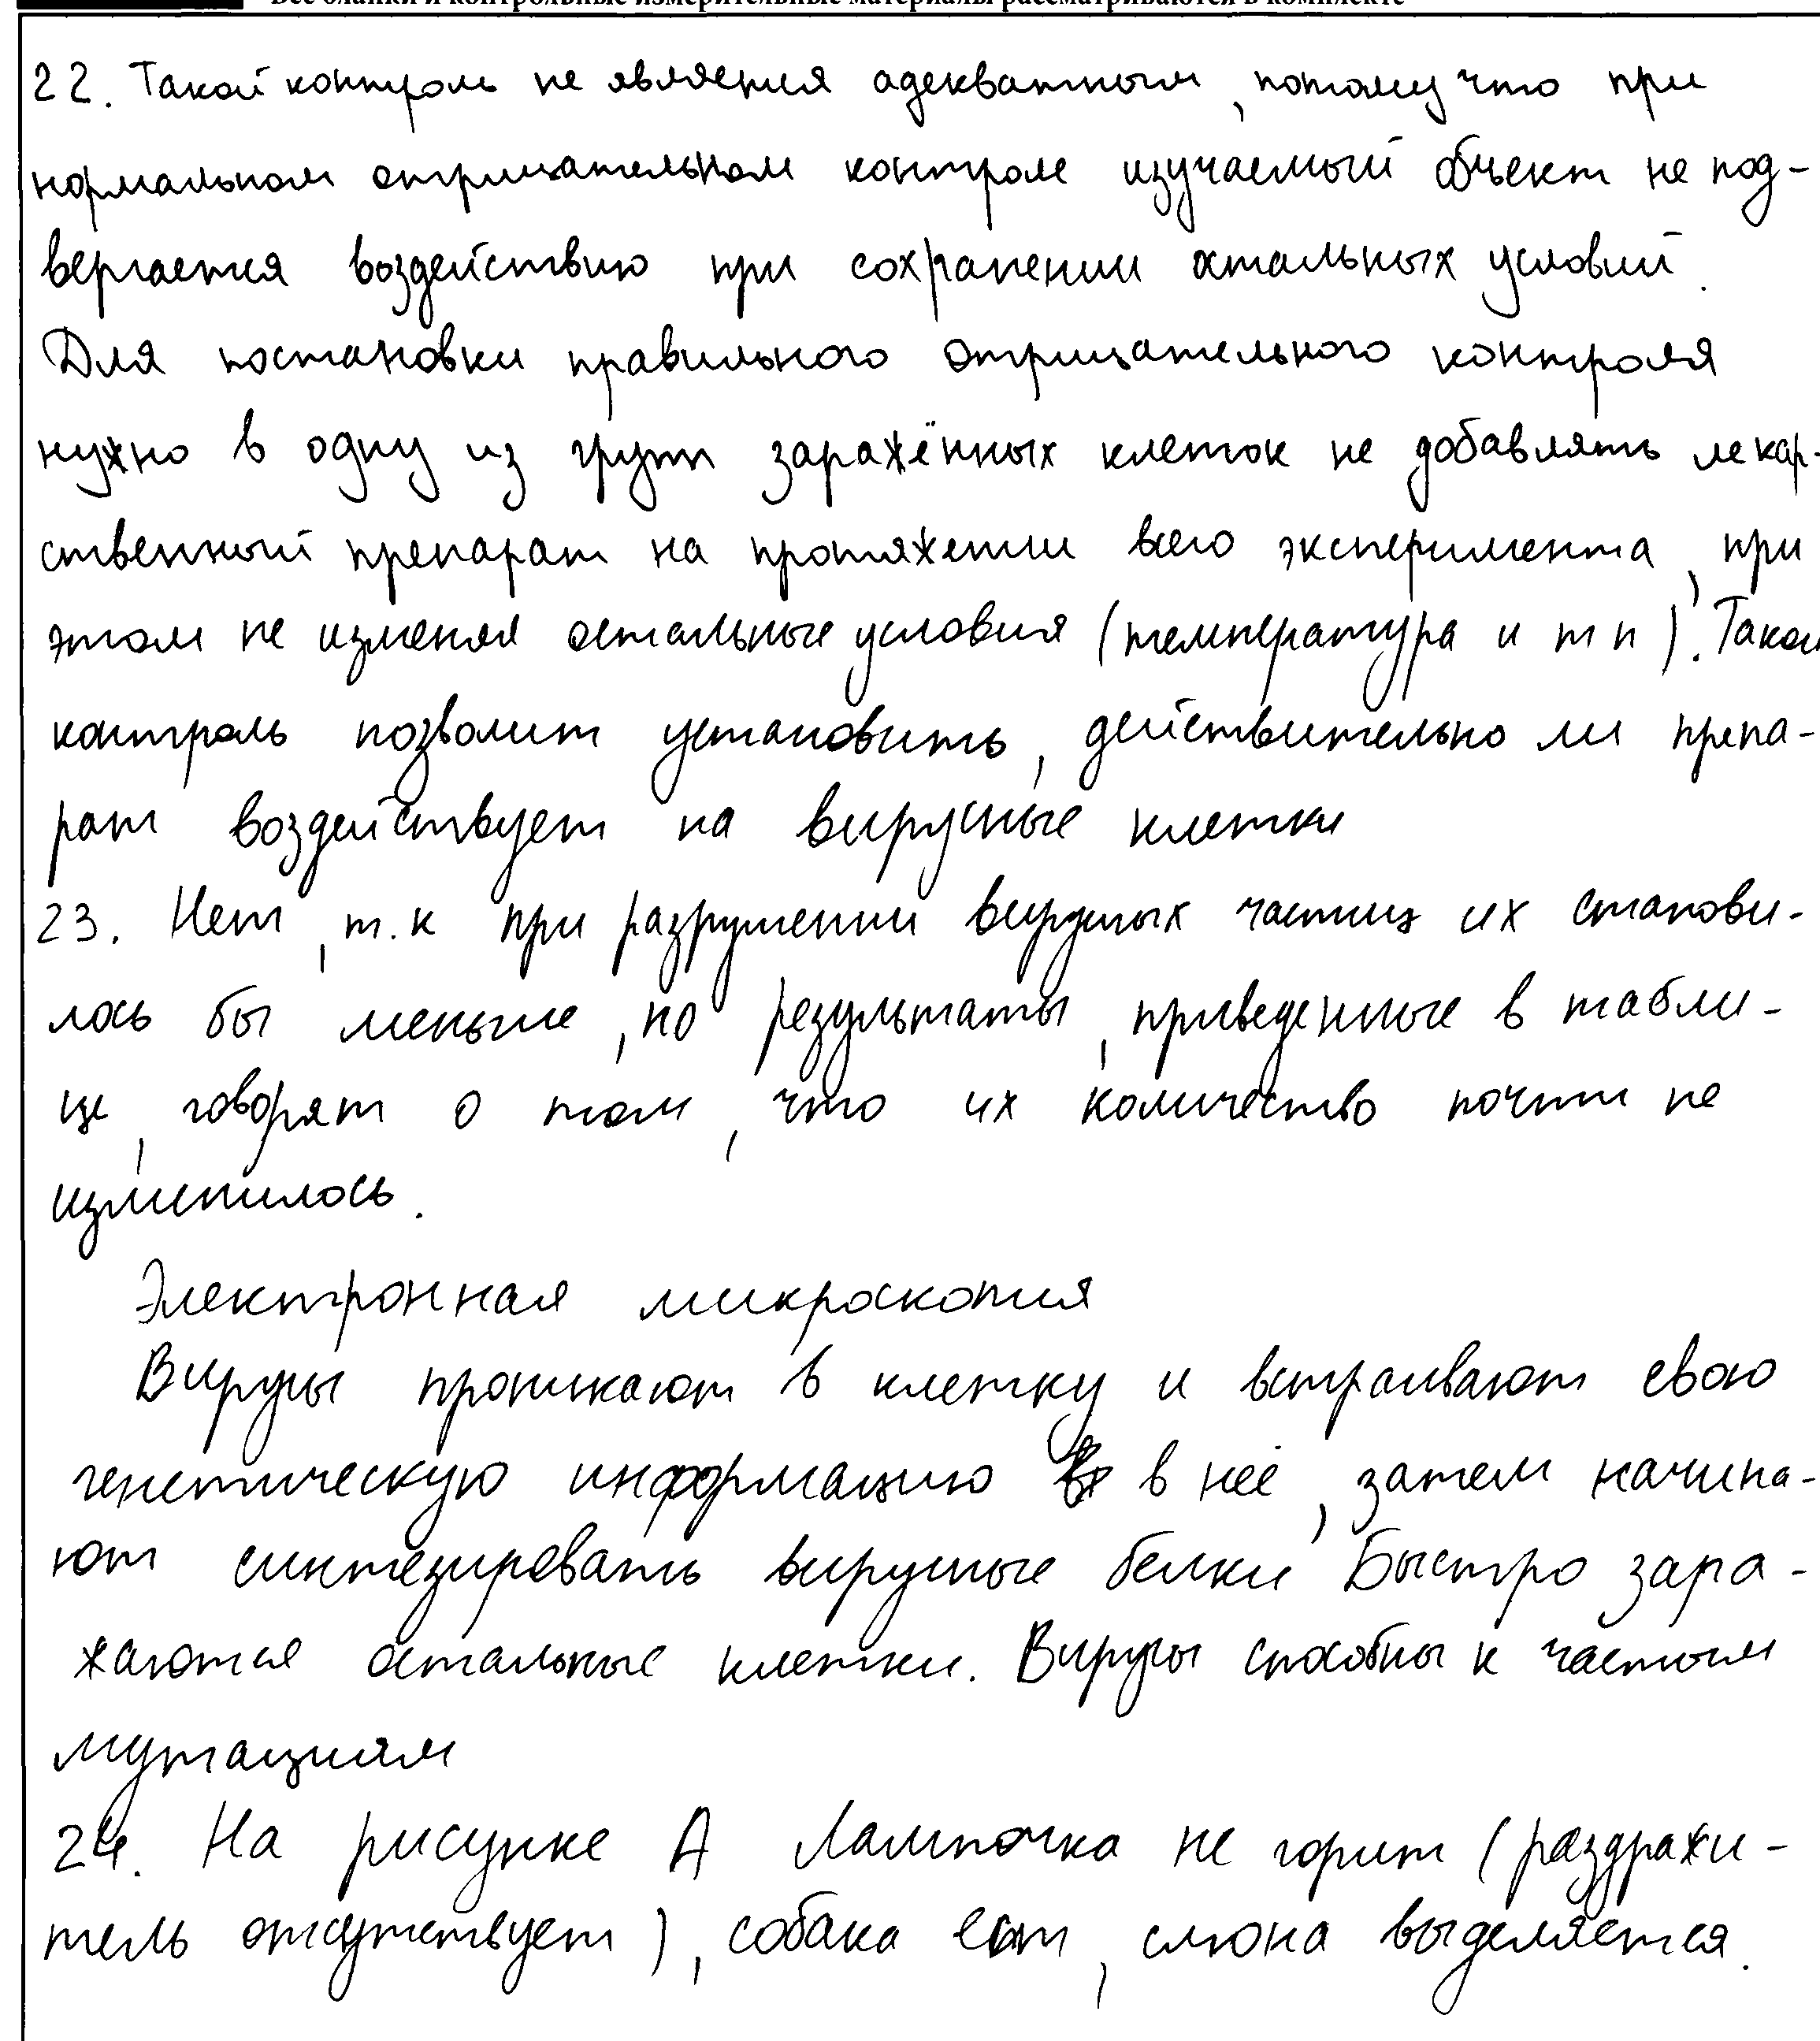 Все бланки и контрольные измерительные материалы рассматриваются в комплекте
22. Такой контроль не является адекватным, потому что при
нормальном отрицательном контроле изучаемый объект не под-
вергается воздействию при сохранении остальных условий.
Для постановки правильного отрицательного контроля
нужно в одну из групп заражённых клеток не добавлять лекар-
ственный препарат на протяжении всего эксперимента, при
этом не изменяя остальные условия (температура и т п). Такой
контроль позволит установить, действительно ли препа-
рат воздействует на вирусные клетки
23. Нет, т.к при разрушении вирусных частиц их станови-
лось бы меньше, но результаты, приведенные в табли-
це, говорят о том, что их количество почти не
изменилось.
Электронная микроскопия
Вирусы проникают в клетку и встраивают свою
генетическую информацию в неё, затем начина-
ют синтезировать вирусные белки Быстро зара-
жаются остальные клетки. Вирусы способны к частым
мутациям
24. На рисунке А Лампочка не горит (раздражи-
тель отсутствует), собака ест, слюна выделяется.